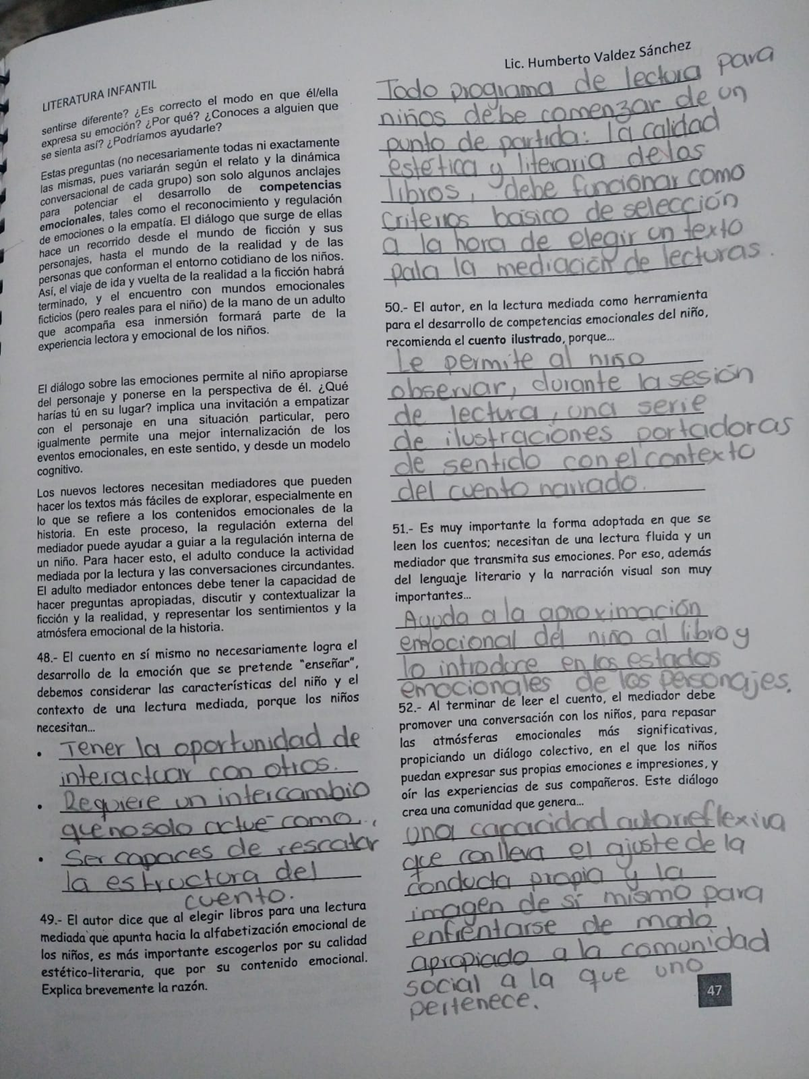 LITERATURA INFANTIL
sentirse diferente? ¿Es correcto el modo en que él/ella
expresa su emoción? ¿Por qué? ¿Conoces a alguien que
se sienta así? ¿Podríamos ayudarle?
Estas preguntas (no necesariamente todas ni exactamente
las mismas, pues variarán según el relato y la dinámica
conversacional de cada grupo) son solo algunos anclajes
para potenciar el desarrollo de competencias
emocionales, tales como el reconocimiento y regulación
de emociones o la empatía. El diálogo que surge de ellas
hace un recorrido desde el mundo de ficción y sus
personajes, hasta el mundo de la realidad y de las
personas que conforman el entorno cotidiano de los niños.
Así, el viaje de ida y vuelta de la realidad a la ficción habrá
terminado, y el encuentro con mundos emocionales
ficticios (pero reales para el niño) de la mano de un adulto
que acompaña esa inmersión formará parte de la
experiencia lectora y emocional de los niños.
El diálogo sobre las emociones permite al niño apropiarse
del personaje y ponerse en la perspectiva de él. ¿Qué
harías tú en su lugar? implica una invitación a empatizar
con el personaje en una situación particular, pero
igualmente permite una mejor internalización de los
eventos emocionales, en este sentido, y desde un modelo
cognitivo.
Los nuevos lectores necesitan mediadores que pueden
hacer los textos más fáciles de explorar, especialmente en
lo que se refiere a los contenidos emocionales de la
historia. En este proceso, la regulación externa del
mediador puede ayudar a guiar a la regulación interna de
un niño. Para hacer esto, el adulto conduce la actividad
mediada por la lectura y las conversaciones circundantes.
El adulto mediador entonces debe tener la capacidad de
hacer preguntas apropiadas, discutir y contextualizar la
ficción y la realidad, y representar los sentimientos y la
atmósfera emocional de la historia.
48.- El cuento en sí mismo no necesariamente logra el
desarrollo de la emoción que se pretende "enseñar",
debemos considerar las características del niño y el
contexto de una lectura mediada, porque los niños
necesitan...
• Tener la oportunidad de
interactuar con otros.
• Requiere un intercambio
que no solo actue como,
• Ser capaces de rescatar
la estructura del
cuento.
49.- El autor dice que al elegir libros para una lectura
mediada que apunta hacia la alfabetización emocional de
los niños, es más importante escogerlos por su calidad
estético-literaria, que por su contenido emocional.
Explica brevemente la razón.
Lic. Humberto Valdez Sánchez
Todo programa de lectura para
niños debe comenzar de un
punto de partida: la calidad
estética y literaria de los
libros, y debe funcionar como
Criterios basico de selección
a la hora de elegir un texto
pala la mediación de lecturas.
50.- El autor, en la lectura mediada como herramienta
para el desarrollo de competencias emocionales del niño,
recomienda el cuento ilustrado, porque...
Le permite al niño
observar, durante la sesión
de lectura, una serie
de ilustraciones portadoras
de sentido con el contexto
del cuento narrado.
51.- Es muy importante la forma adoptada en que se
leen los cuentos; necesitan de una lectura fluida y un
mediador que transmita sus emociones. Por eso, además
del lenguaje literario y la narración visual son muy
importantes...
Ayuda a la aproximación
emocional del niño al libro y
lo introduce en los estados
emocionales de los personajes.
52.- Al terminar de leer el cuento, el mediador debe
promover una conversación con los niños, para repasar
las atmósferas emocionales más significativas,
propiciando un diálogo colectivo, en el que los niños
puedan expresar sus propias emociones e impresiones, y
oír las experiencias de sus compañeros. Este diálogo
crea una comunidad que genera...
una capacidad autorreflexiva
que conlleva el ajuste de la
conducta propia y la
imagen de sí mismo para
enfrentarse de modo
apropiado a la comunidad
social a la que uno
pertenece.
47